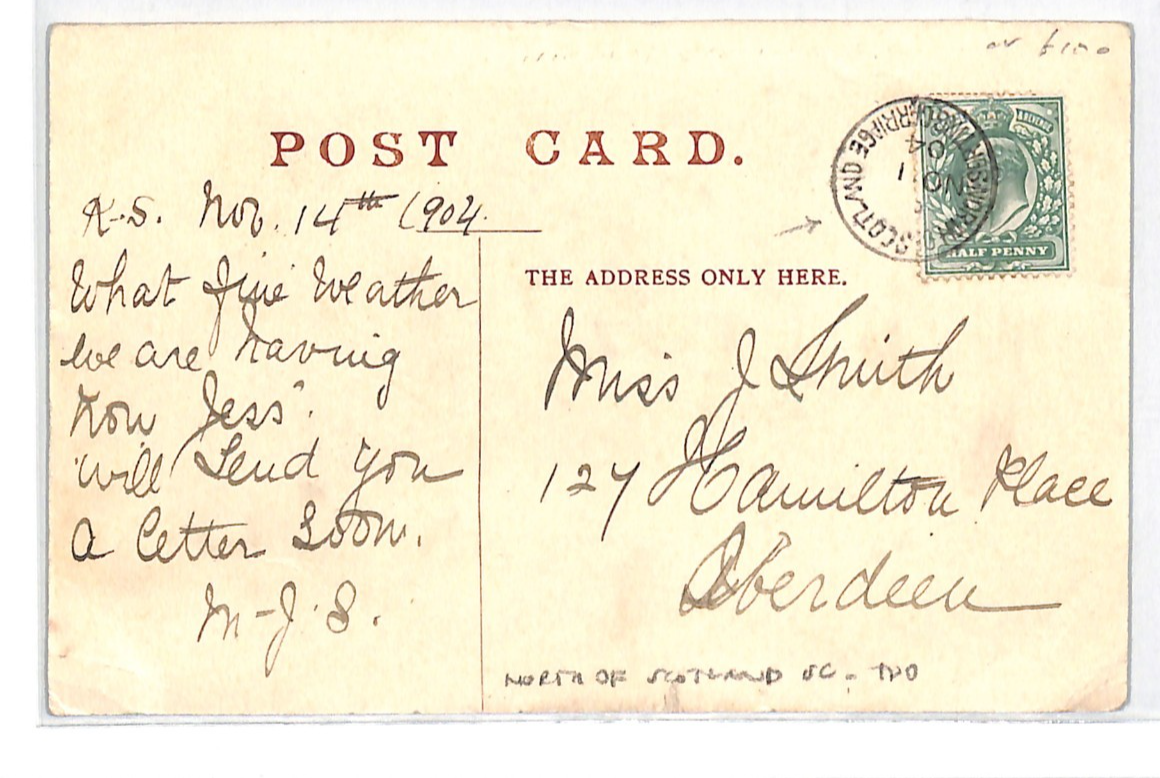 POST CARD.
K.S. Nov. 14th 1904.
What fine Weather
we are having
now Jess.
will Send you
a letter Soon.
M-J.S.
THE ADDRESS ONLY HERE.
Miss J Smith
127 Hamilton Place
Aberdeen
REVENUE
HALF PENNY
SCOTLAND
NO
04
NORTH OF SCOTLAND SC - TPO